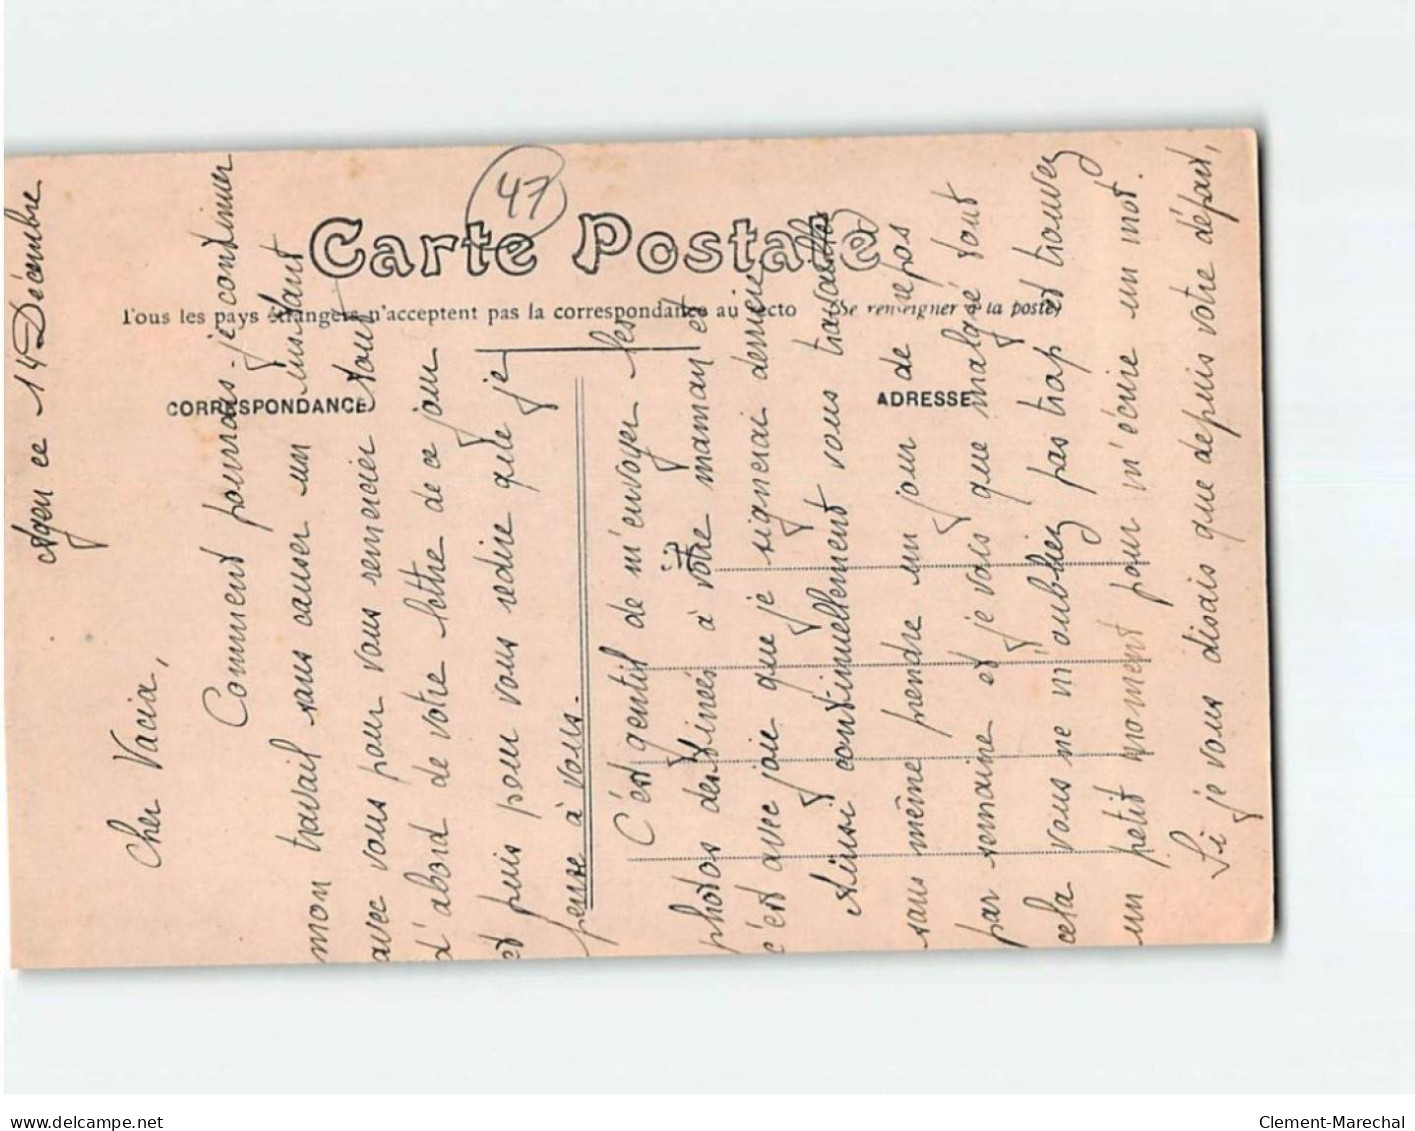 47
Carte Postale
Tous les pays étrangers n'acceptent pas la correspondance au recto (Se renseigner à la poste)
CORRESPONDANCE
ADRESSE
Agen ce 14 Décembre
Cher Vacia,
Comment pourrais-je continuer
mon travail sans causer un instant
avec vous pour vous remercier tout
d'abord de votre lettre de ce jour
et puis pour vous redire que je
pense à vous.
C'est gentil de m'envoyer les
photos destinées à votre maman et
c'est avec joie que je signerai derrière
Ainsi continuellement vous travaillez
sans même prendre un jour de repos
par semaine et je vois que malgré tout
cela vous ne m'oubliez pas trop et trouvez
un petit moment pour m'écrire un mot.
Si je vous disais que depuis votre départ,
www.delcampe.net
Clement-Marechal